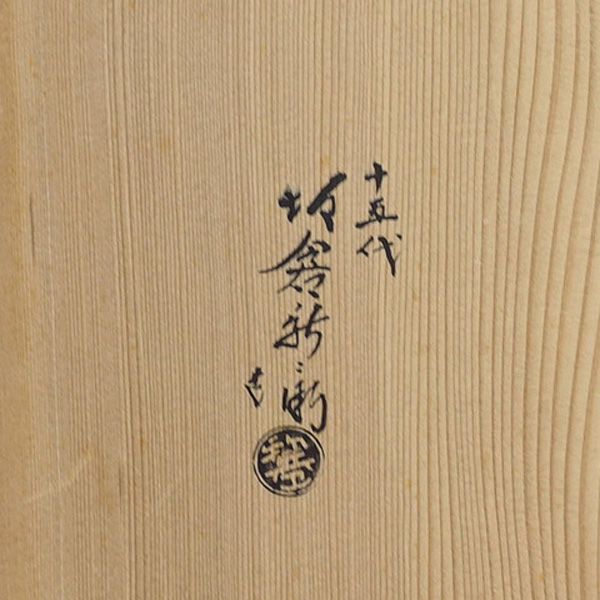 十五代
坂倉新兵衛